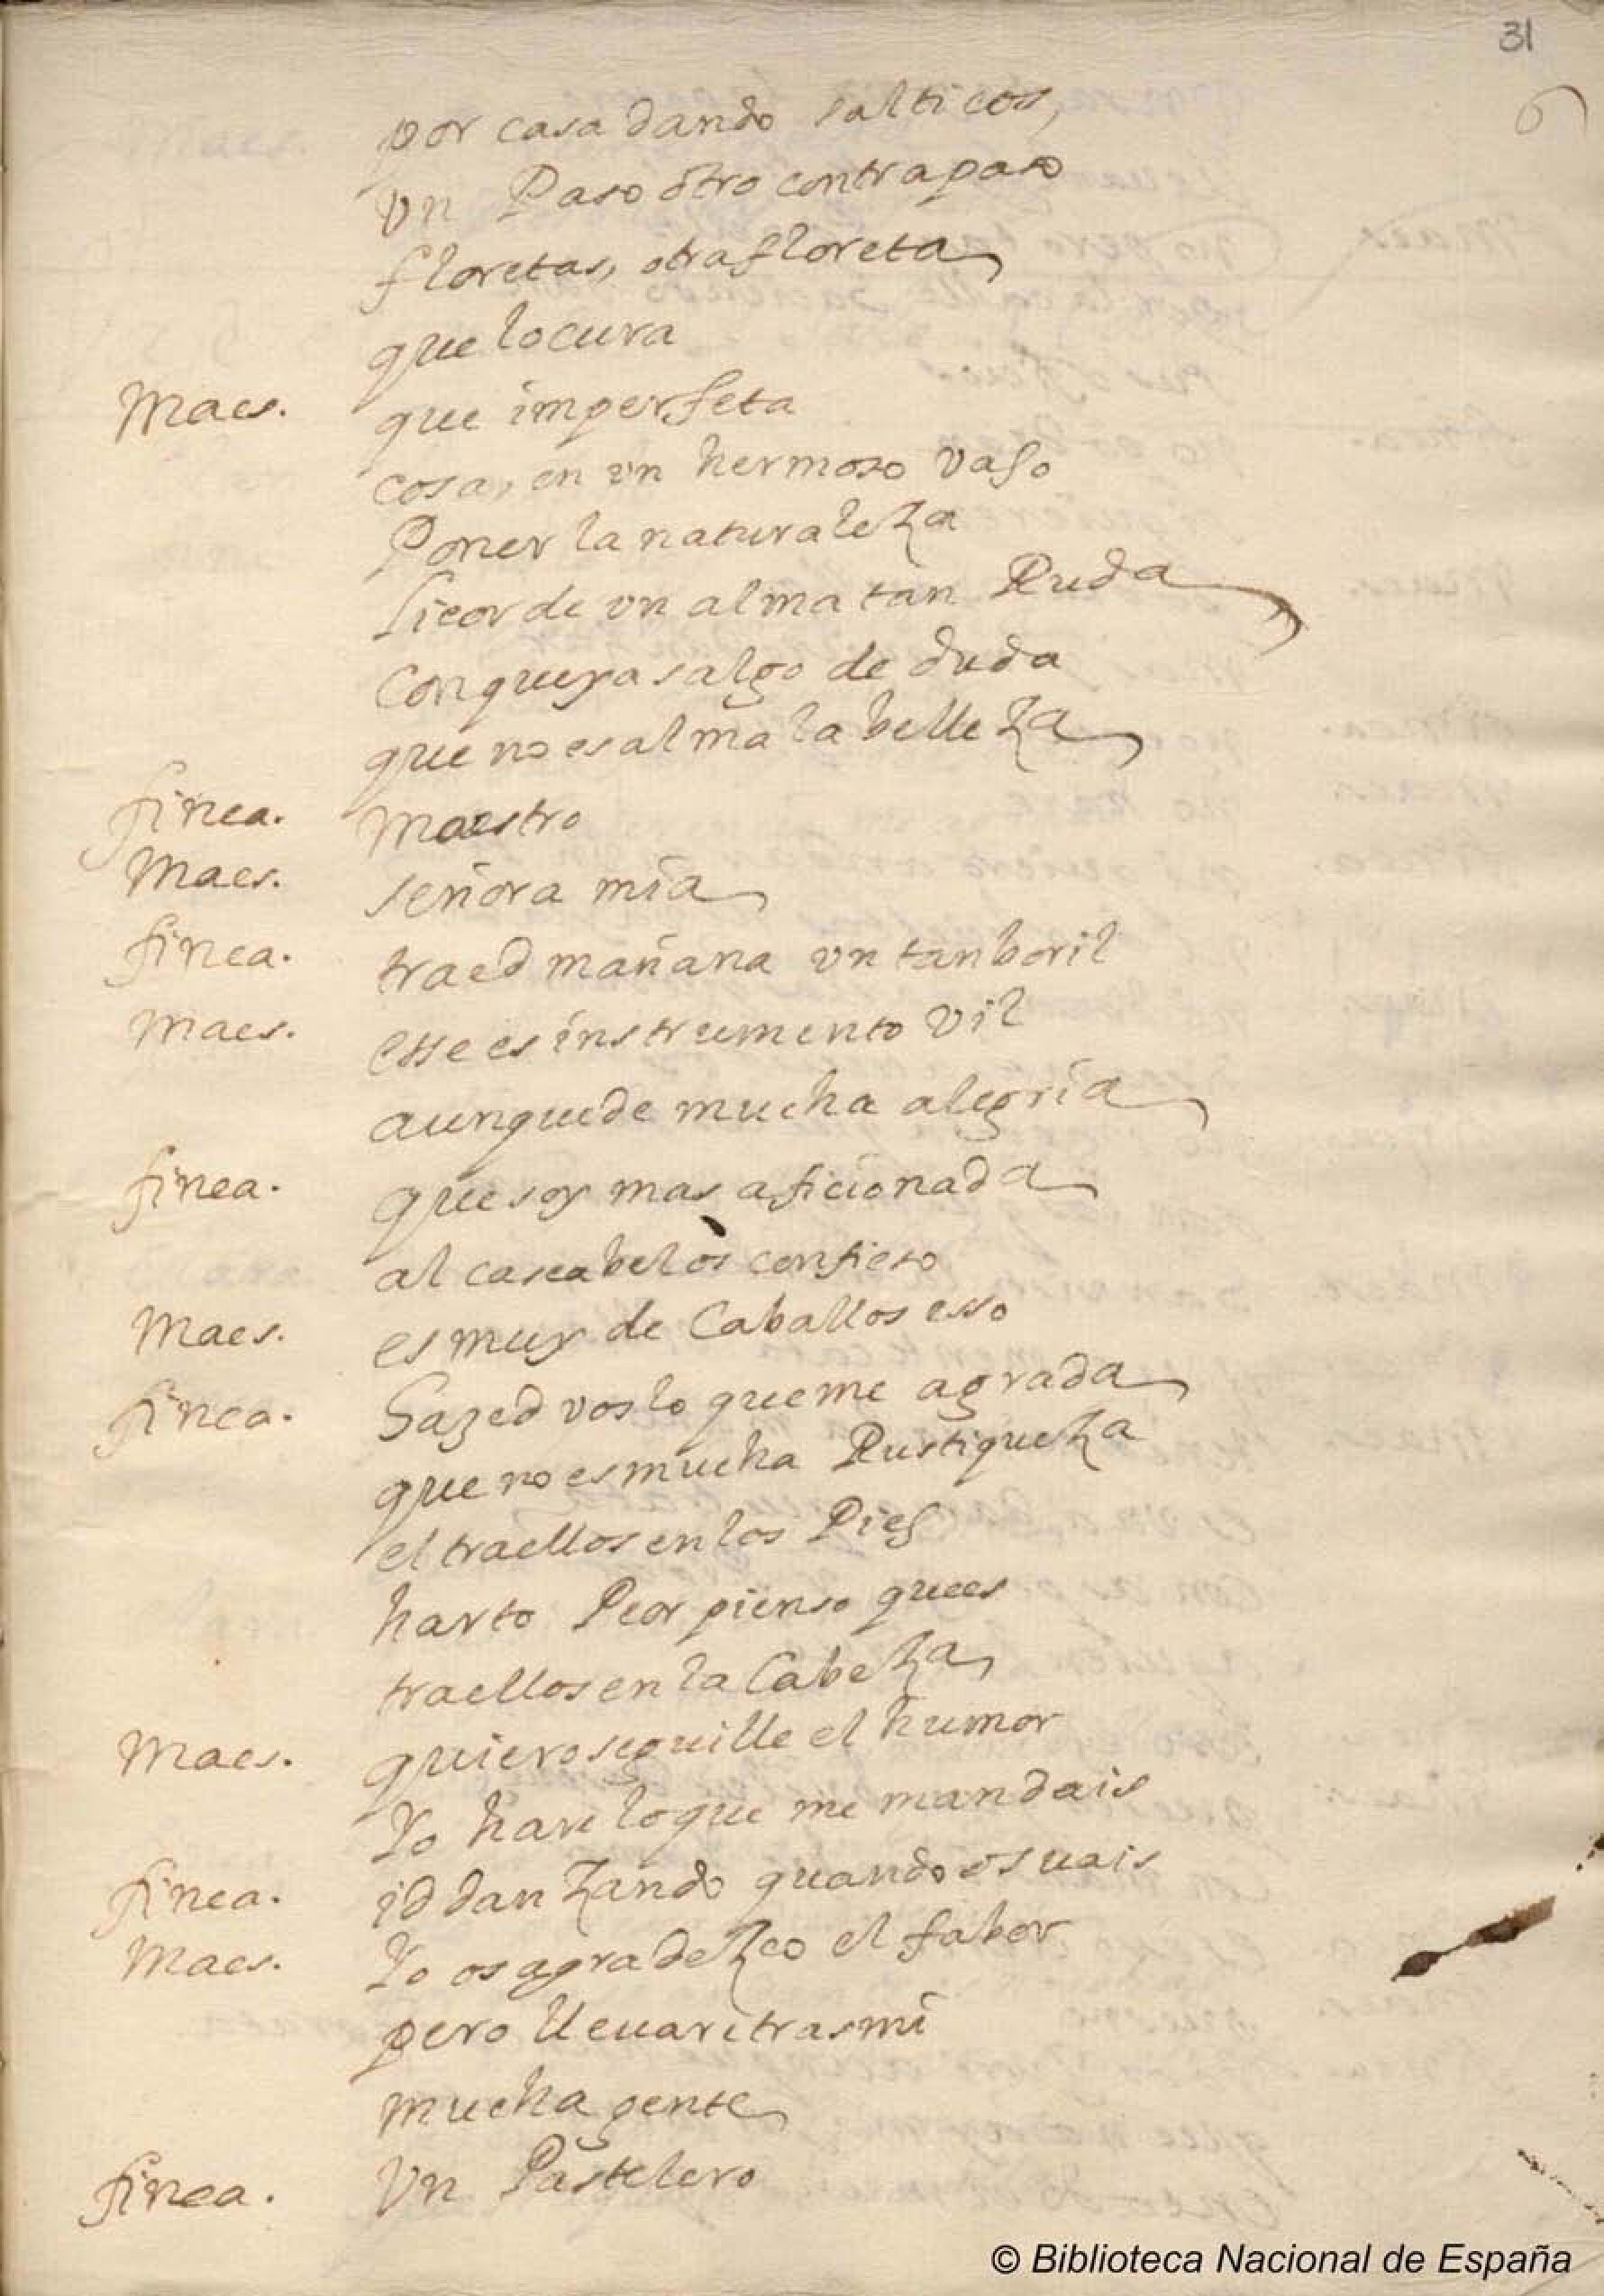 31
6
por casa dando salticos,
vn Paso otro contrapaso
floretas, otra floreta
que locura
Maes. que imperfeta
cosa, en vn hermoso vaso
Poner la naturaleza
licor de vn alma tan Ruda
con que ya salgo de duda
que no es alma la belleza
finea. Maestro
Maes. señora mia
finea. traed mañana vn tanboril
Maes. esse es instrumento vil
aunque de mucha alegria
finea. que soy mas aficionada
al cascabel os confieso
Maes. es muy de Caballos esso
finea. Hazed vos lo que me agrada
que no es mucha Rustiqueza
el traellos en los Pies
harto Peor pienso que es
traellos en la Cabeza
Maes. quiero seguille el humor
Yo hare lo que me mandais
finea. id danzando quando os uais
Maes. Yo os agradezco el fabor
pero lleuare tras mi
mucha gente
finea. Vn Pastelero
© Biblioteca Nacional de España